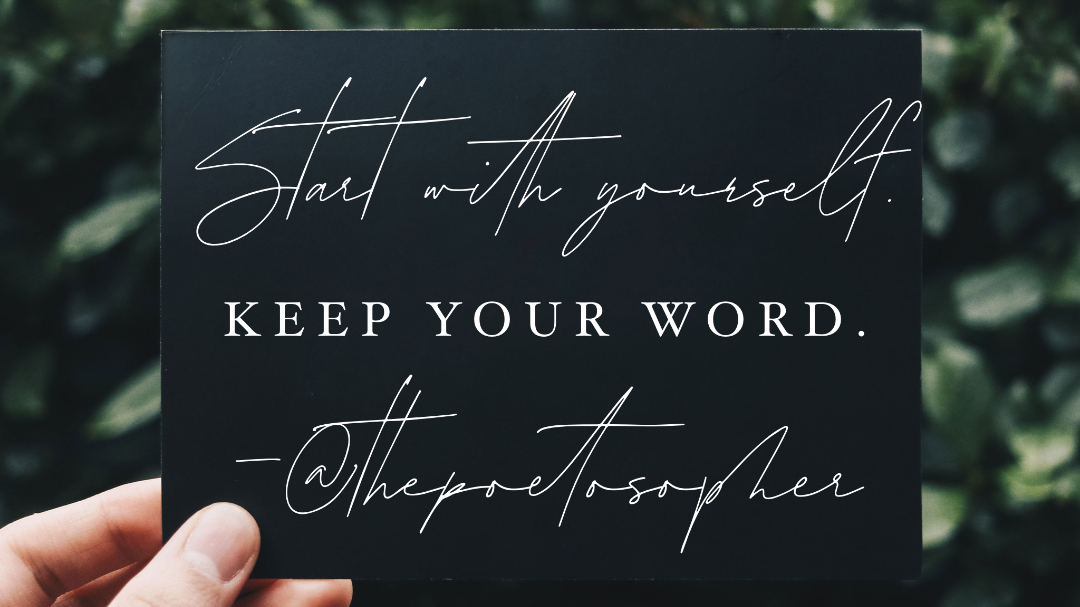 Start with yourself.
KEEP YOUR WORD.
-@thepoetosopher